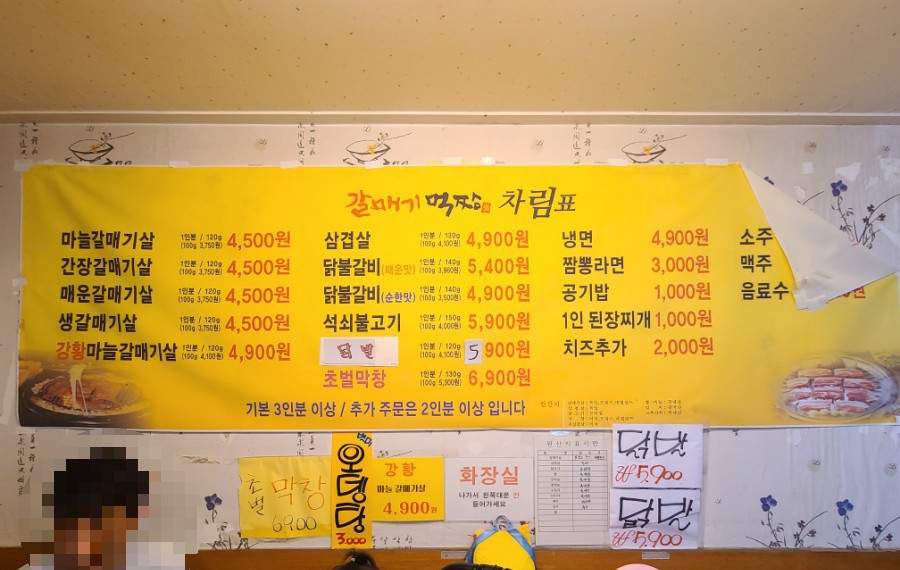 갈매기 먹짱 차림표
마늘갈매기살 1인분 / 120g (100g 3,750원) 4,500원
간장갈매기살 1인분 / 120g (100g 3,750원) 4,500원
매운갈매기살 1인분 / 120g (100g 3,750원) 4,500원
생갈매기살 1인분 / 120g (100g 3,750원) 4,500원
강황마늘갈매기살 1인분 / 120g (100g 4,100원) 4,900원
삼겹살 1인분 / 130g (100g 4,100원) 4,900원
닭불갈비(매운맛) 1인분 / 140g (100g 3,860원) 5,400원
닭불갈비(순한맛) 1인분 / 140g (100g 3,500원) 4,900원
석쇠불고기 1인분 / 150g (100g 4,000원) 5,900원
닭발 1인분 / 120g (100g 4,100원) 5,900원
초벌막창 1인분 / 130g (100g 5,300원) 6,900원
냉면 4,900원
짬뽕라면 3,000원
공기밥 1,000원
1인 된장찌개 1,000원
치즈추가 2,000원
소주
맥주
음료수
기본 3인분 이상 / 추가 주문은 2인분 이상 입니다
원산지
초벌 막창
6900
오뎅탕
3.000
강황
마늘 갈매기살
4,900원
화장실
나가서 왼쪽대문 안
들어가세요
원산지표시판
닭발
₩5,900
닭발
₩5,900